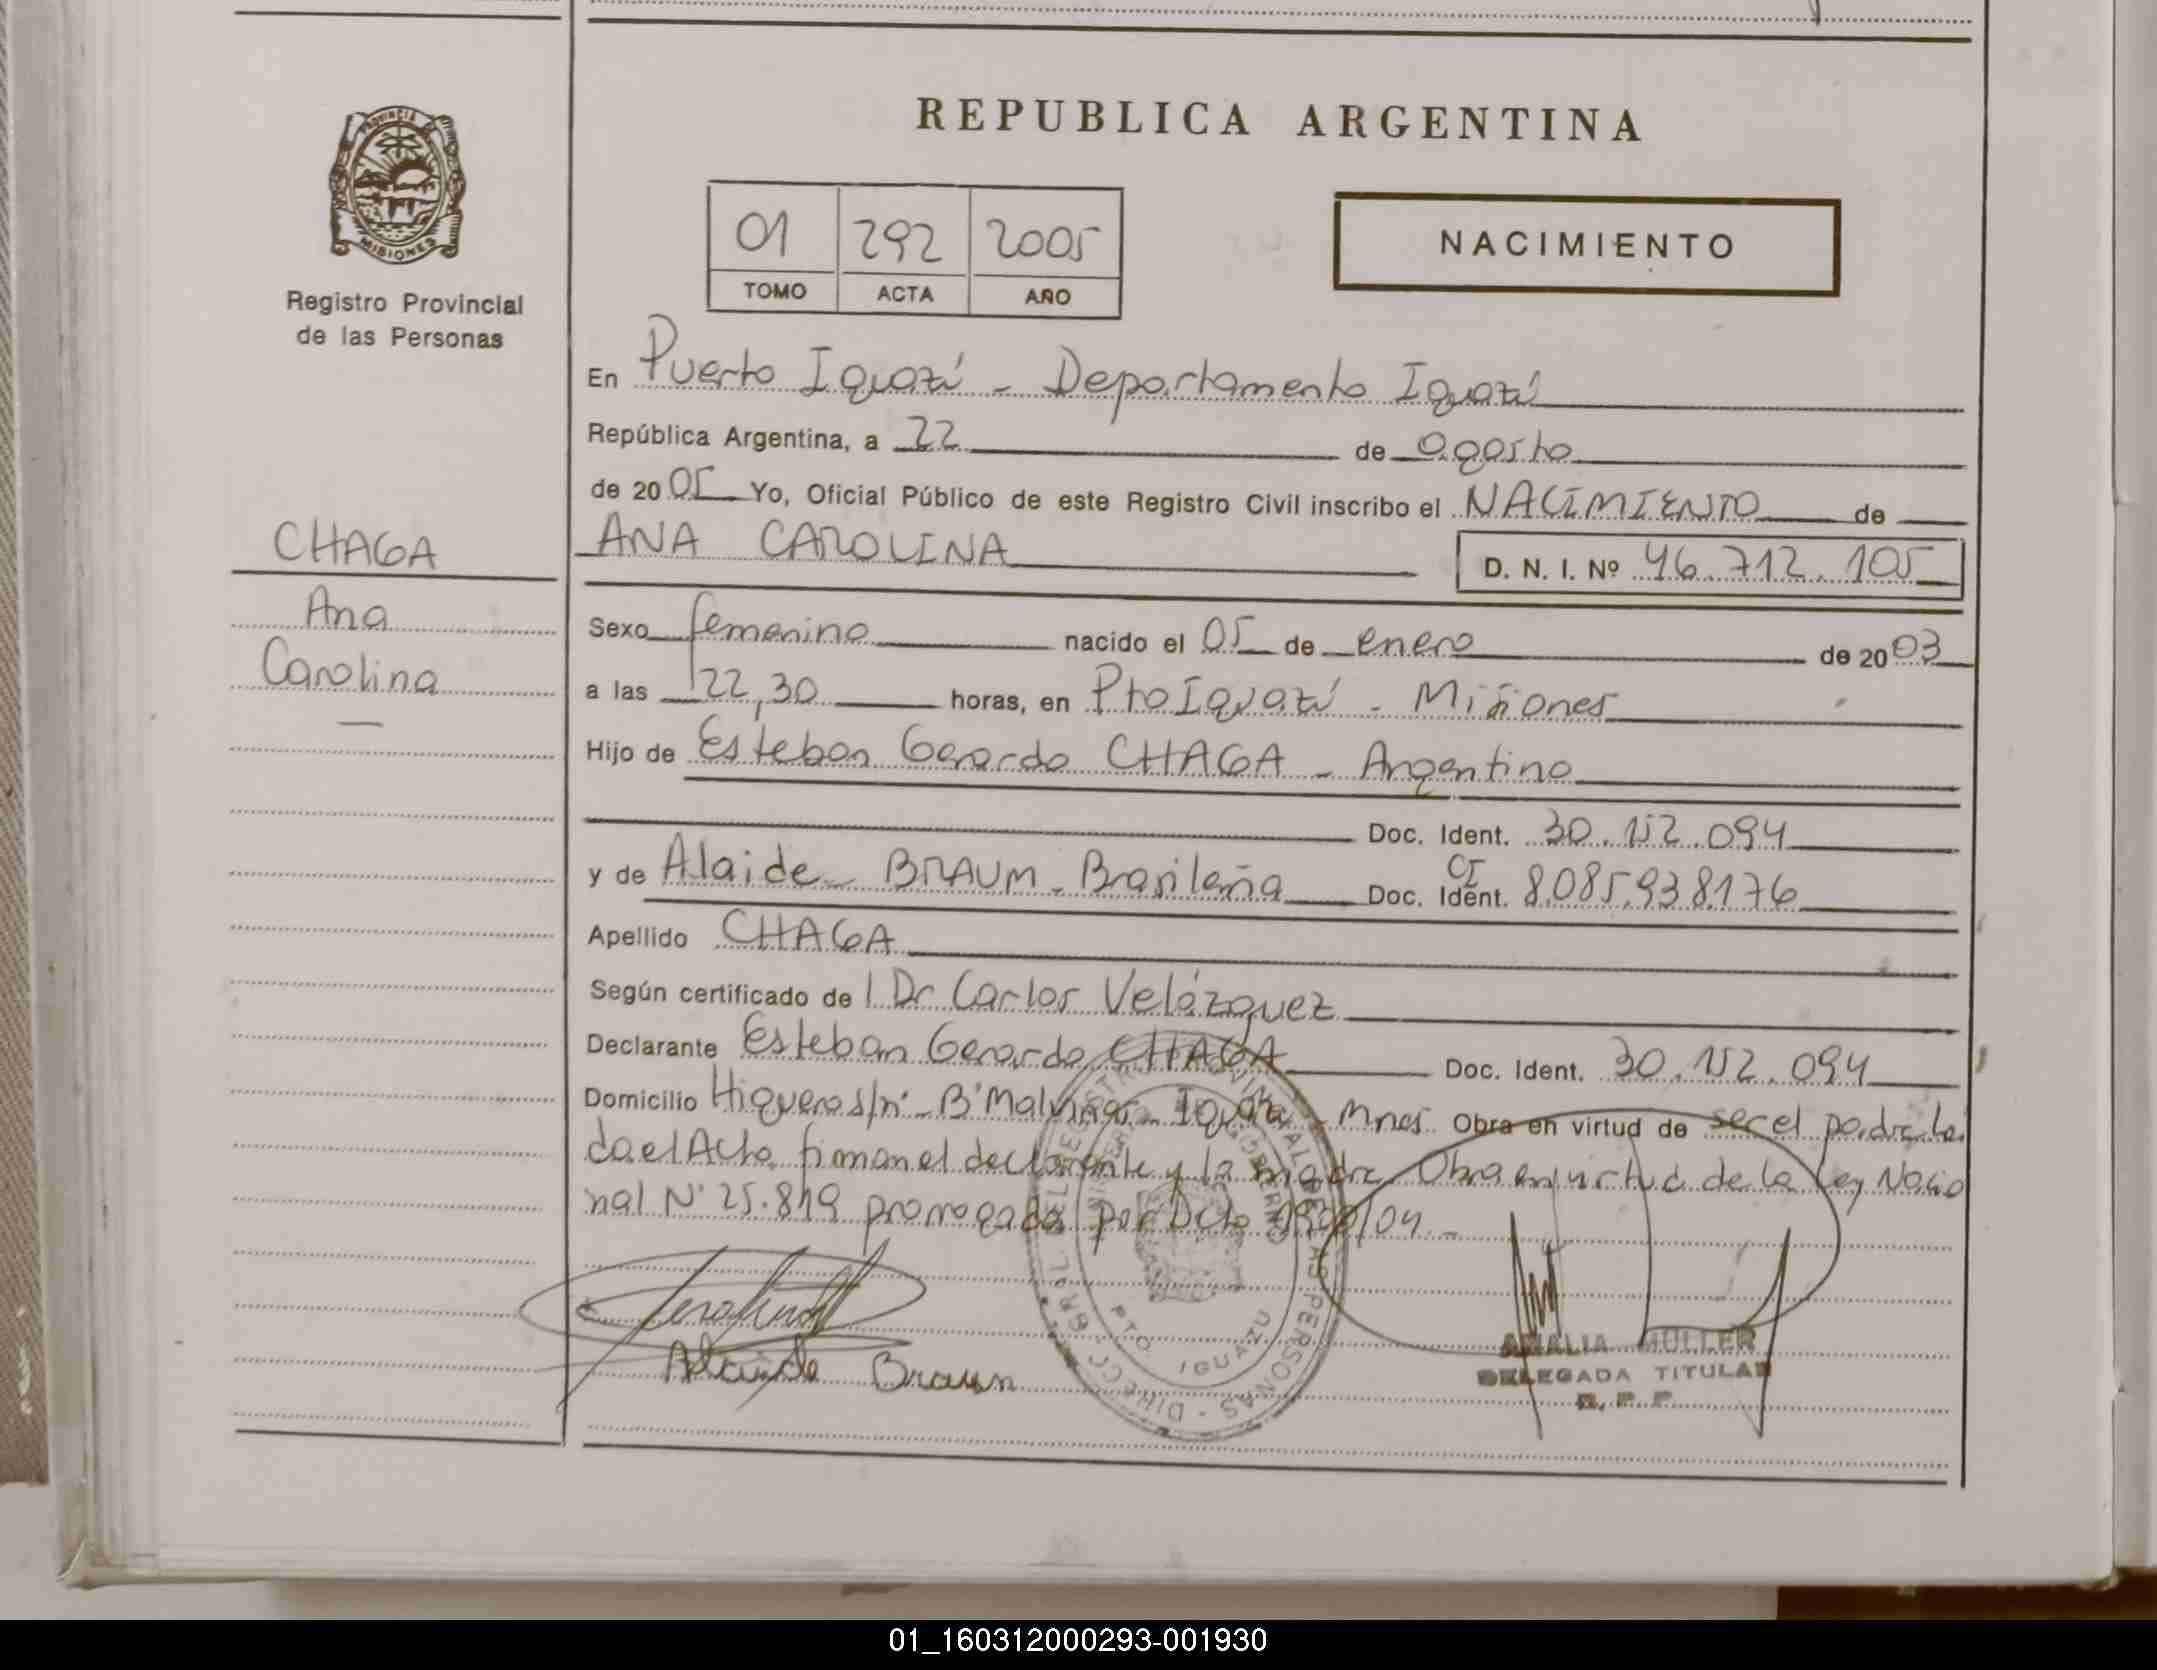 REPUBLICA ARGENTINA
PROVINCIA DE
MISIONES
Registro Provincial
de las Personas
01 292 2005
TOMO ACTA AÑO
NACIMIENTO
En Puerto Iguazú - Departamento Iguazú
República Argentina, a 22 de agosto
de 2005 Yo, Oficial Público de este Registro Civil inscribo el NACIMIENTO de
CHAGA
Ana
Carolina
ANA CAROLINA D. N. I. Nº 46.712.105
Sexo femenino nacido el 05 de enero de 2003
a las 22,30 horas, en Pto Iguazú - Misiones
Hijo de Esteban Gerardo CHAGA - Argentino
Doc. Ident. 30.152.094
y de Alaide - BRAUM - Brasileña Doc. Ident. CI 8.085.938.176
Apellido CHAGA
Según certificado de l Dr Carlos Velázquez
Declarante Esteban Gerardo CHAGA Doc. Ident. 30.152.094
Domicilio Higueras/nº - Bº Malvinas - Iguazú - Mnes Obra en virtud de ser el padre. Leí
da el Acta firman el declarante y la madre. Obra en virtud de la Ley Nacio
nal Nº 25.819 prorrogada por Dcto /04 -
Alaide Braun
DIRECC. GRAL. DEL REGISTRO PROVINCIAL DE LAS PERSONAS
PTO IGUAZU
AMALIA MULLER
DELEGADA TITULAR
R. P. P.
01_160312000293-001930